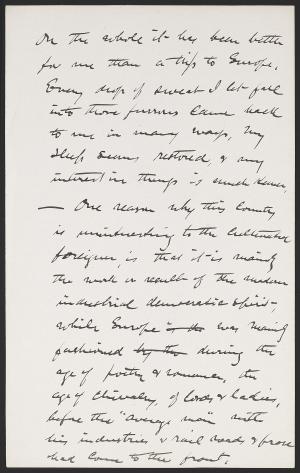 On the whole it has been better
for me than a trip to Europe.
Every drop of sweat I let fall
into those furrows came back
to me in many ways, my
sleep seems restored, & my
interest in things is much keener.
— One reason why this country
is uninteresting to the cultivated
foreigner, is that it is mainly
the work or result of the modern
industrial democratic spirit,
while Europe is the was mainly
fashioned by the during the
age of poetry & romance, the
age of chivalry, of lords & ladies,
before the "average man" with
his industries & rail roads & prose
had come to the front.